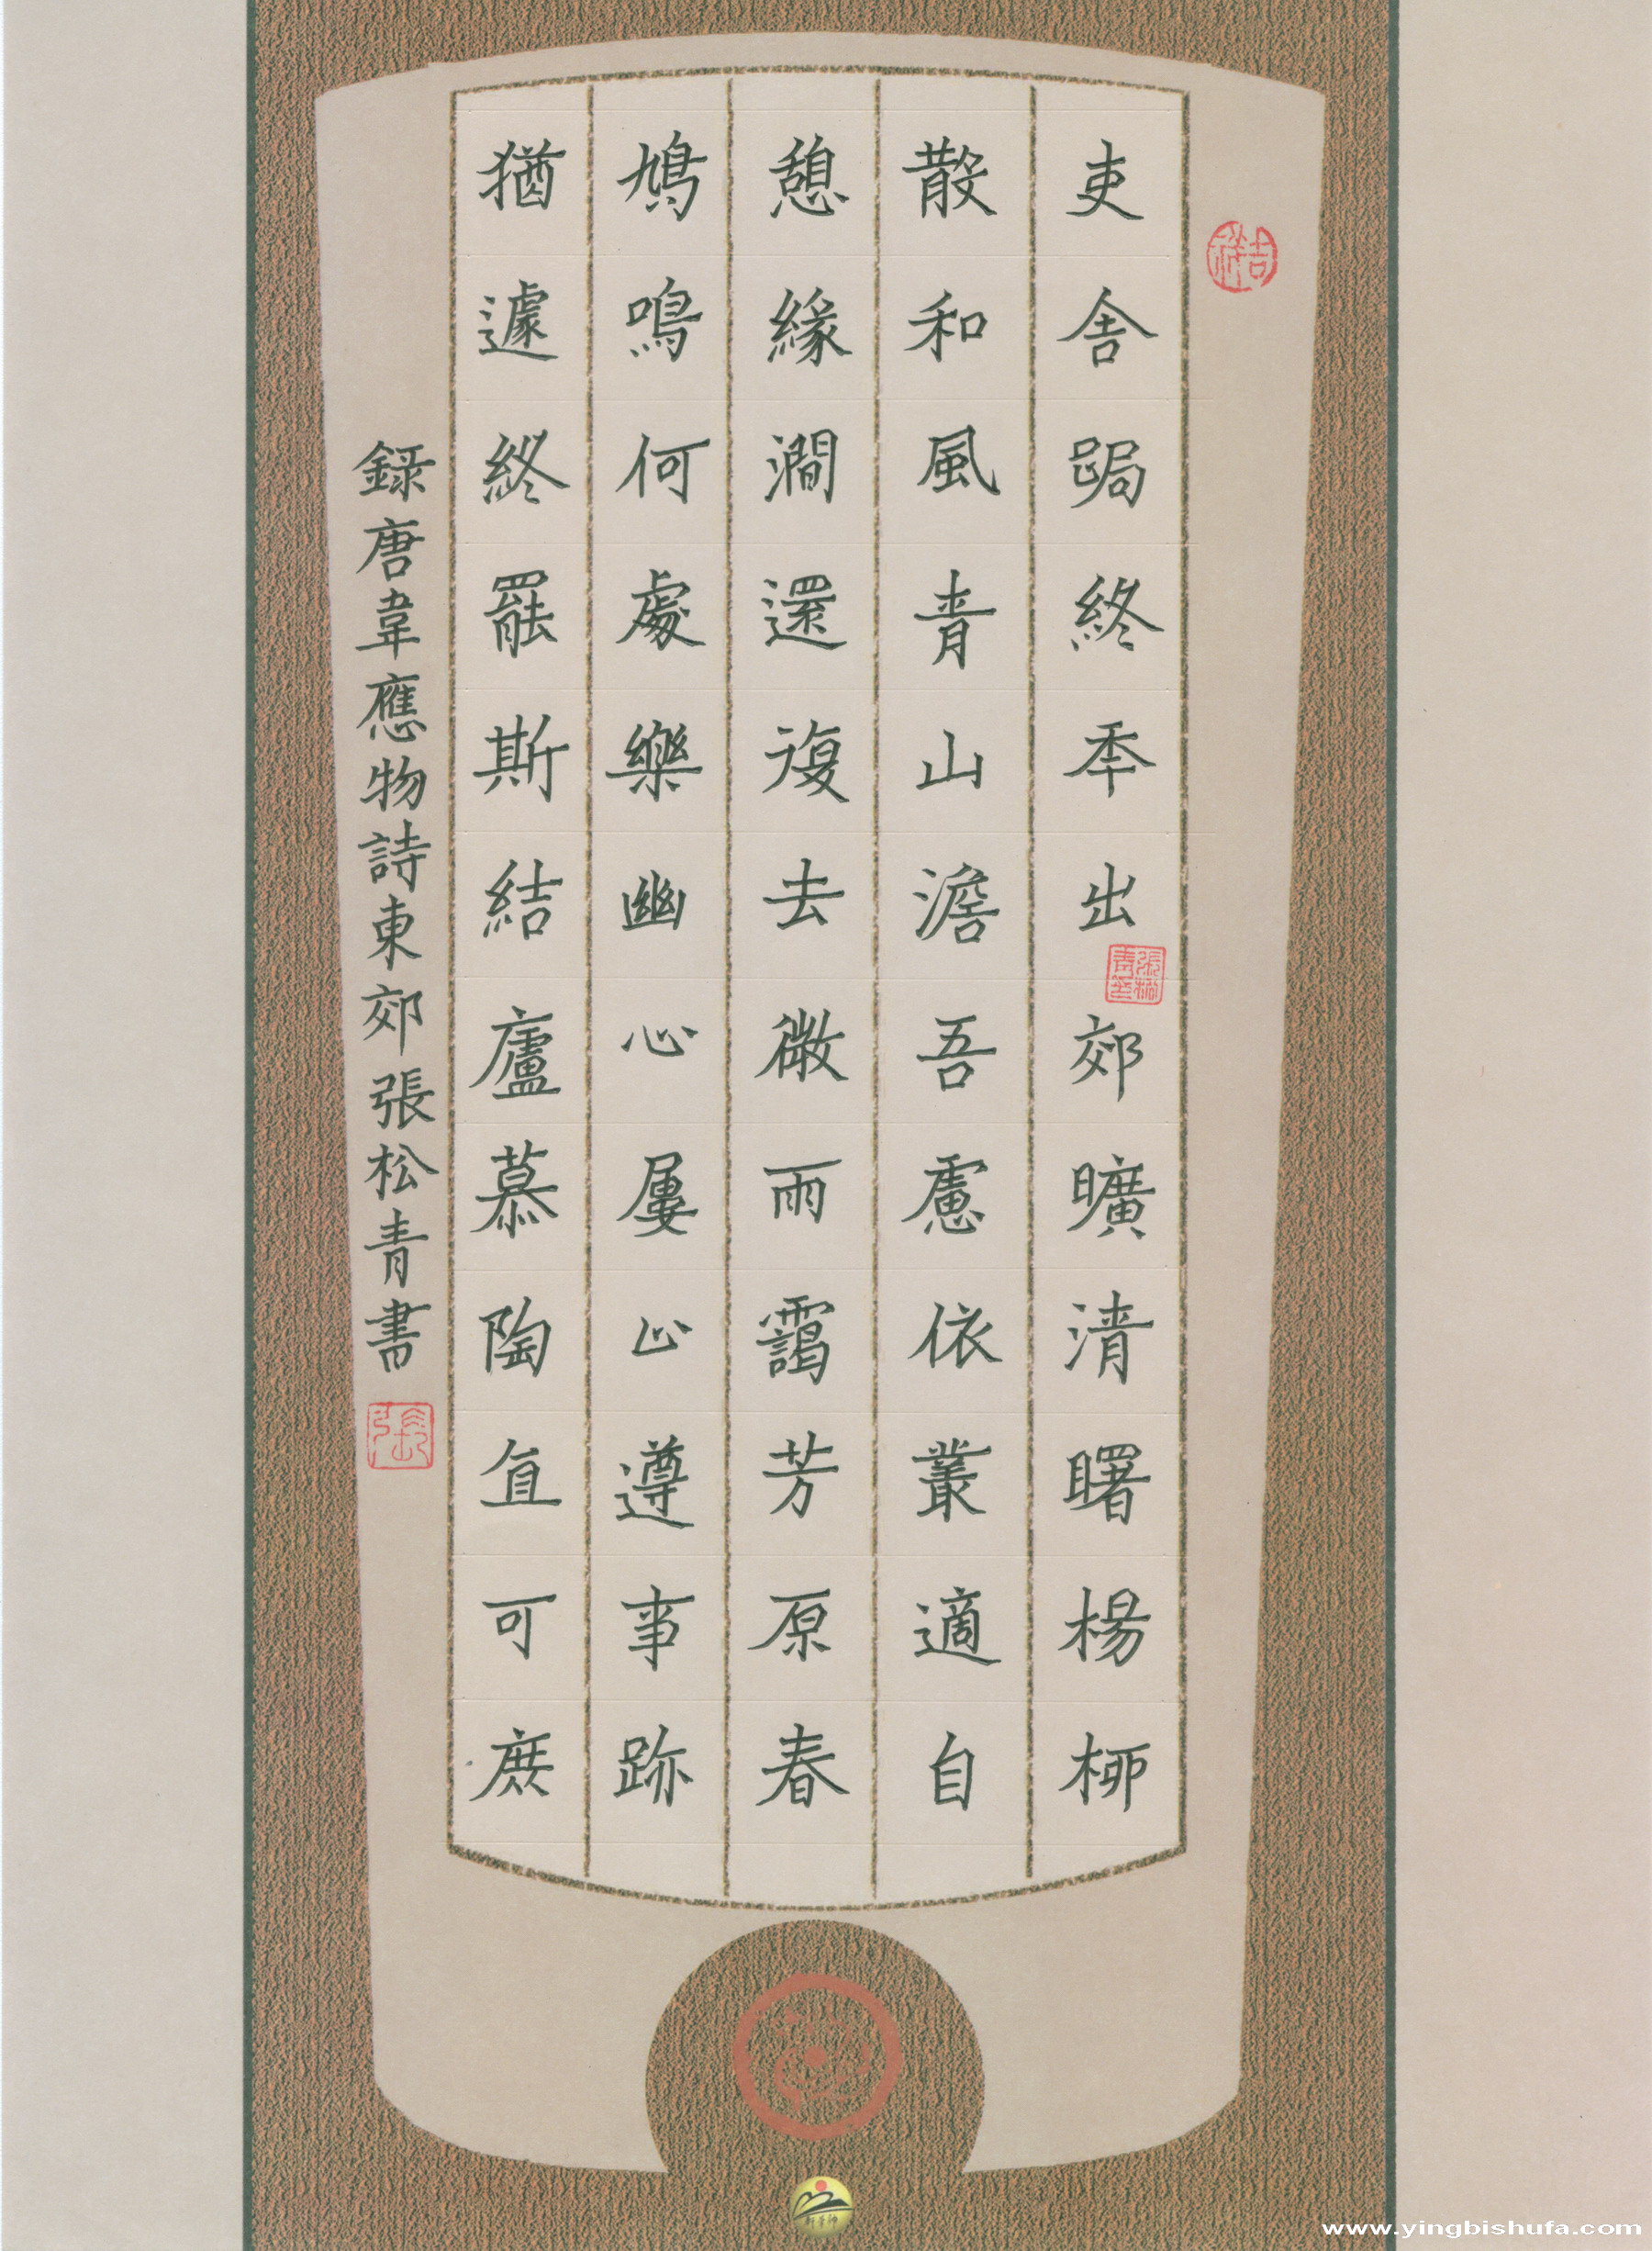 吉祥
吏舍跼終秊出郊曠清曙楊柳
張松青印
散和風青山澹吾慮依叢適自
憩緣澗還復去微雨靄芳原春
鳩鳴何處樂幽心屢止遵事跡
猶遽終罷斯結廬慕陶直可庶
錄唐韋應物詩東郊張松青書
張
www.yingbishufa.com